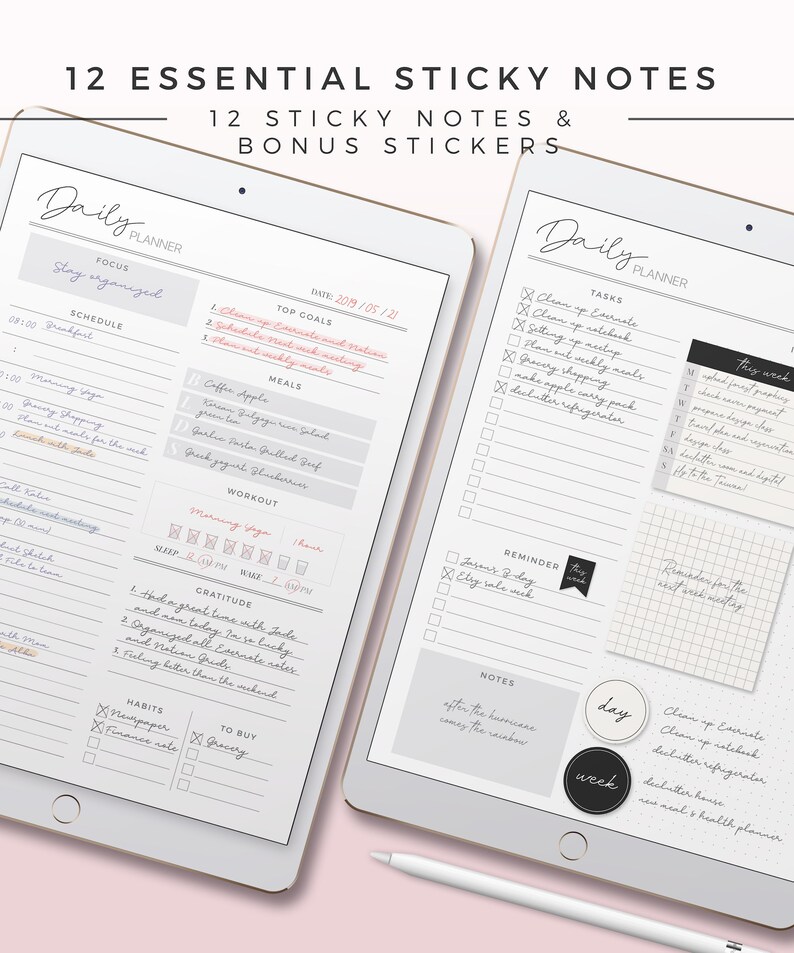 12 ESSENTIAL STICKY NOTES
12 STICKY NOTES &
BONUS STICKERS
Daily
PLANNER
FOCUS
Stay organized
DATE: 2019 / 05 / 21
SCHEDULE
08:00 Breakfast
:
0:00 Morning Yoga
Grocery Shopping
Plan out meals for the week
Lunch with Jade
Call Katie
schedule next meeting
(30 min)
Sketch
File to team
with Mom
TOP GOALS
1. Clean up Evernote and Notion
2. Schedule Next week meeting
3. Plan out weekly meals
MEALS
B Coffee, Apple
L Korean Bulgogi rice, Salad
green tea
D Garlic Pasta, Grilled Beef
S Greek yogurt, Blueberries
WORKOUT
Morning Yoga
1 hour
SLEEP 12 AM/PM WAKE 7 AM/PM
GRATITUDE
1. Had a great time with Jade
and mom today. I'm so lucky
2. Organized all Evernote notes
and Notion Grids.
3. Feeling better than the weekend
HABITS
Newspaper
Finance note
TO BUY
Grocery
Daily
PLANNER
TASKS
Clean up Evernote
Clean up notebook
Setting up meetup
Plan out weekly meals
Grocery shopping
make apples carry pack
declutter refrigerator
this week
M upload forest graphics
T check never payment
W prepare design class
T travel plan and reservation
F design class
SA declutter room and digital
S fly to the Taiwan!
REMINDER
Jason's B-day
Etsy sale week
this
week
Reminder for the
next week meeting
NOTES
after the hurricane
comes the rainbow
day
week
Clean up Evernote
Clean up notebook
declutter refrigerator
declutter house
new meal & health planner